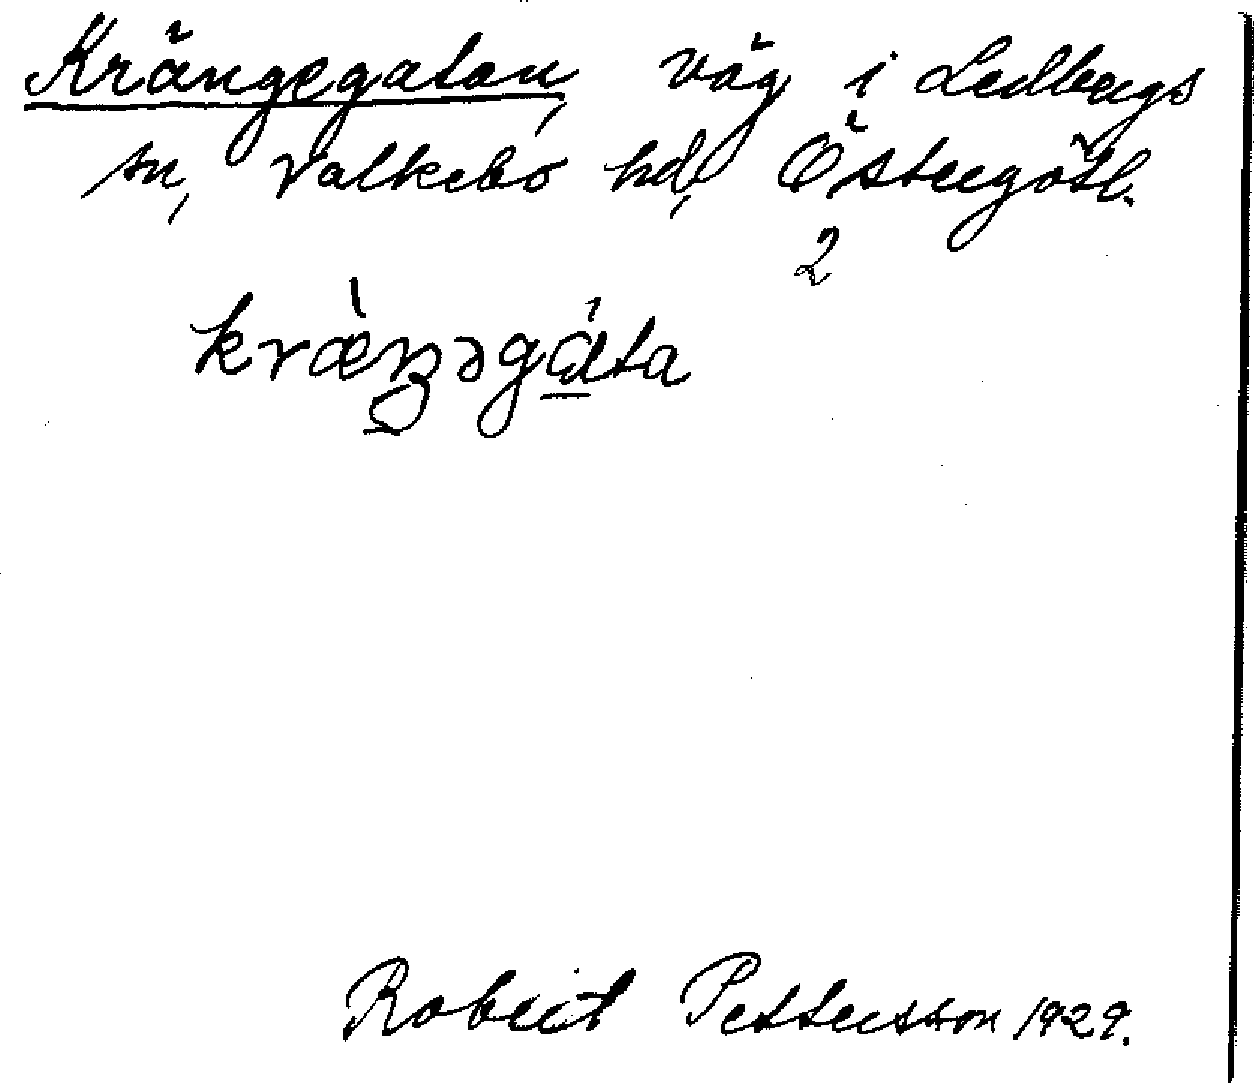 Krängegatan, väg i Ledbergs
sn, Valkebo hd, Östergötl.
2
kræ̀ŋəgáta
Robert Pettersson 1929.